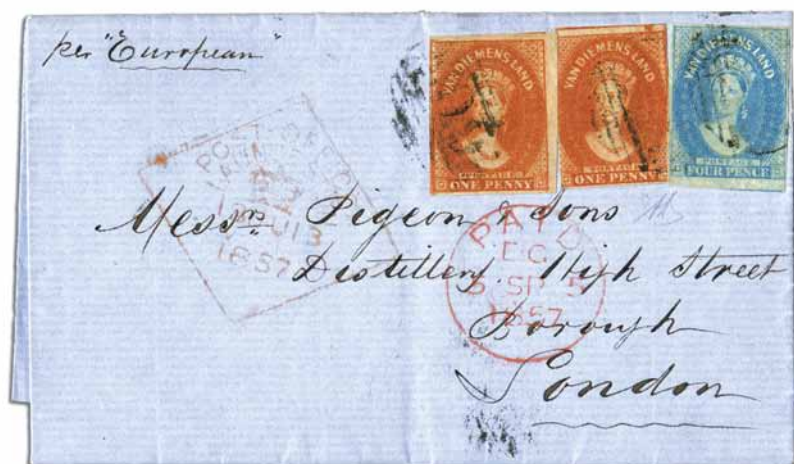 per "European"
VAN DIEMENS LAND
POSTAGE
ONE PENNY
VAN DIEMENS LAND
POSTAGE
ONE PENNY
VAN DIEMENS LAND
POSTAGE
FOUR PENCE
POST OFFICE
1857
Messrs Pigeon & Sons
Distillery High Street
Borough
London
PAID
SP 5
1857